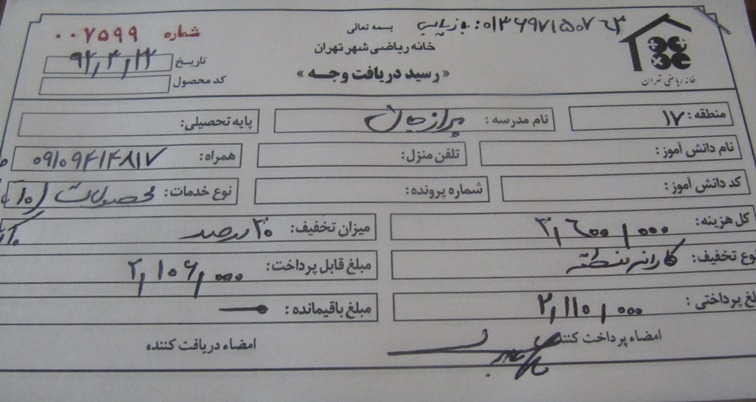 بسمه تعالی
خانه ریاضی شهر تهران
« رسید دریافت وجه »
خانه ریاضی تهران
شماره ۰۰۷۵۹۹
تاریخ ۹۲,۴,۲۲
کد محصول
منطقه: ۱۷
نام مدرسه:
پایه تحصیلی:
نام دانش آموز:
تلفن منزل:
همراه: ۰۹۱۰۹۴۱۴۸۱۷
کد دانش آموز:
شماره پرونده:
نوع خدمات: محصولات
کل هزینه: ۳,۶۰۰,۰۰۰
میزان تخفیف: ۴۰ درصد
نوع تخفیف:
مبلغ قابل پرداخت: ۲,۱۰۶,۰۰۰
مبلغ پرداختی: ۲,۱۱۰,۰۰۰
مبلغ باقیمانده:
امضاء پرداخت کننده
امضاء دریافت کننده